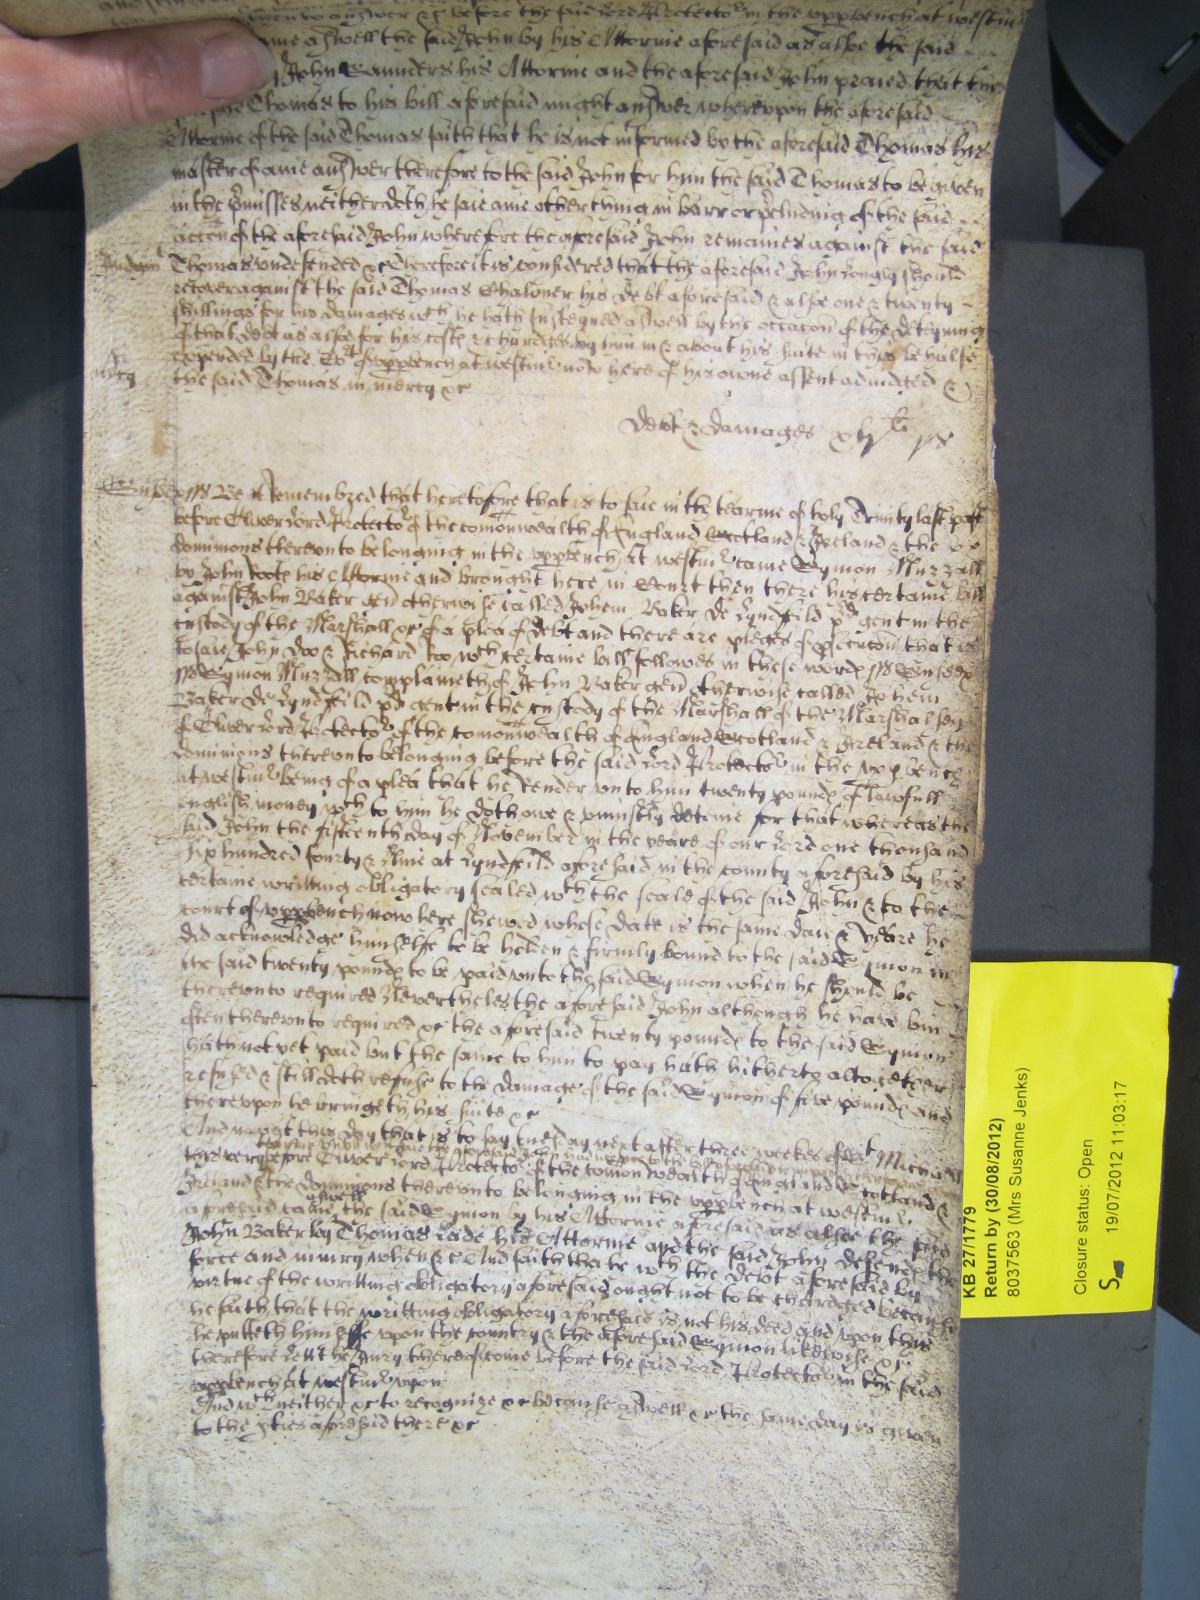 then to answer &c before the said Lord Protector in the uppbench at Westm
came aswell the said John by his Attornie aforesaid as alsoe the said
John Saunders his Attornie and the aforesaid John praied that the
Thomas to his bill aforesaid might answer whereupon the aforesaid
Attornie of the said Thomas saith that he is not informed by the aforesaid Thomas his
master of anie answer therefore to the said John for him the said Thomas to be given
in the p'misses neither doth he saie anie other thing in barr or p'cludinig of the said
accon of the aforesaid John wherefore the aforesaid John remaines against the said
Thomas undefended &c Therefore it is considered that the aforesaid John should
recover against the said Thomas Chaloner his debt aforesaid & alsoe one & twenty
shillings for his damages wch he hath susteyned aswell by the occacon of the deteyning
of that debt as alsoe for his costs & chardges by him in & about his suite in this behalfe
expended by the Cort of uppbench at Westmr now here of his owne assent adiudged &
the said Thomas in mercy &c
mercy
Debt & damages
Sussex ss Be it remembred that heretofore that is to saie in the tearme of holy Trinity last past
before Oliver Lord Protector of the comonwealth of England Scotland & Ireland & the
dominions thereunto belonging in the uppbench at Westmr came Symon Muzzall
by John his Attornie and brought here in Court then there his certaine bill
against John Baker gen otherwise called Johem Baker de Lyndfeild pd gent in the
custody of the Marshall &c of a plea of debt and there are pleges of p'secucon that is
to saie John Doo & Richard Roo wch certaine bill followes in these words ss Sussex
ss Symon Muzzall complaineth of John Baker gen otherwise called Johem
Baker de Lyndfeild pd gent in the custody of the Marshall of the Marshalsey
of Oliver Lord Protector of the comonwealth of England Scotland & Ireland & the
dominions thereunto belonging before the said Lord Protector in the upp bench
at Westmr being of a plea that he render unto him twenty pounds of lawfull
english money wch to him he doth owe & uniustly deteine for that whereas the
said John the fifteenth day of November in the yeare of our Lord one thousand
six hundred fourty & Nine at Lyndfeild aforesaid in the county aforesaid by his
certaine writting obligatory sealed wth the seale of the said John & to the
court of uppbench now here shewed whose date is the same daie & yeare he
did acknowledge himselfe to be holden & firmly bound to the said Symon in
the said twenty pounds to be paid unto the said Symon when he should be
thereunto required Nevertheles the aforesaid John although he have bin
often thereunto required &c the aforesaid twenty pounds to the said Symon
hath not yet paid but the same to him to pay hath hitherto altogether
refused & still doth refuse to the damage of the said Symon of five pounds and
thereupon he bringeth his suite &c
And now at this day that is to say tuesday next after three weekes of St Michaell
this very before Oliver Lord Protector of the comon wealth of England Scotland &
Ireland & the dominions thereunto belonging in the uppbench at Westmr
aforesaid came aswell the said Symon by his Attornie aforesaid as alsoe the said
John Baker by Thomas Lade his Attornie and the said John defends the
force and iniury when &c And saith that he wth the debt aforesaid by
virtue of the writting obligatory aforesaid ought not to be chardged because
he saith that the writting obligatory aforesaid is not his deed and upon this
he putteth himselfe upon the country & the aforesaid Symon likewise &c
therefore lett the Jury thereof come before the said Lord Protector in the said
uppbench at Westmr upon
And wch neither &c to recognize &c because aswell &c the same day is given
to the p'ties aforesaid there &c
KB 27/1779
Return by (30/08/2012)
8037563 (Mrs Susanne Jenks)
Closure status: Open
S
19/07/2012 11:03:17